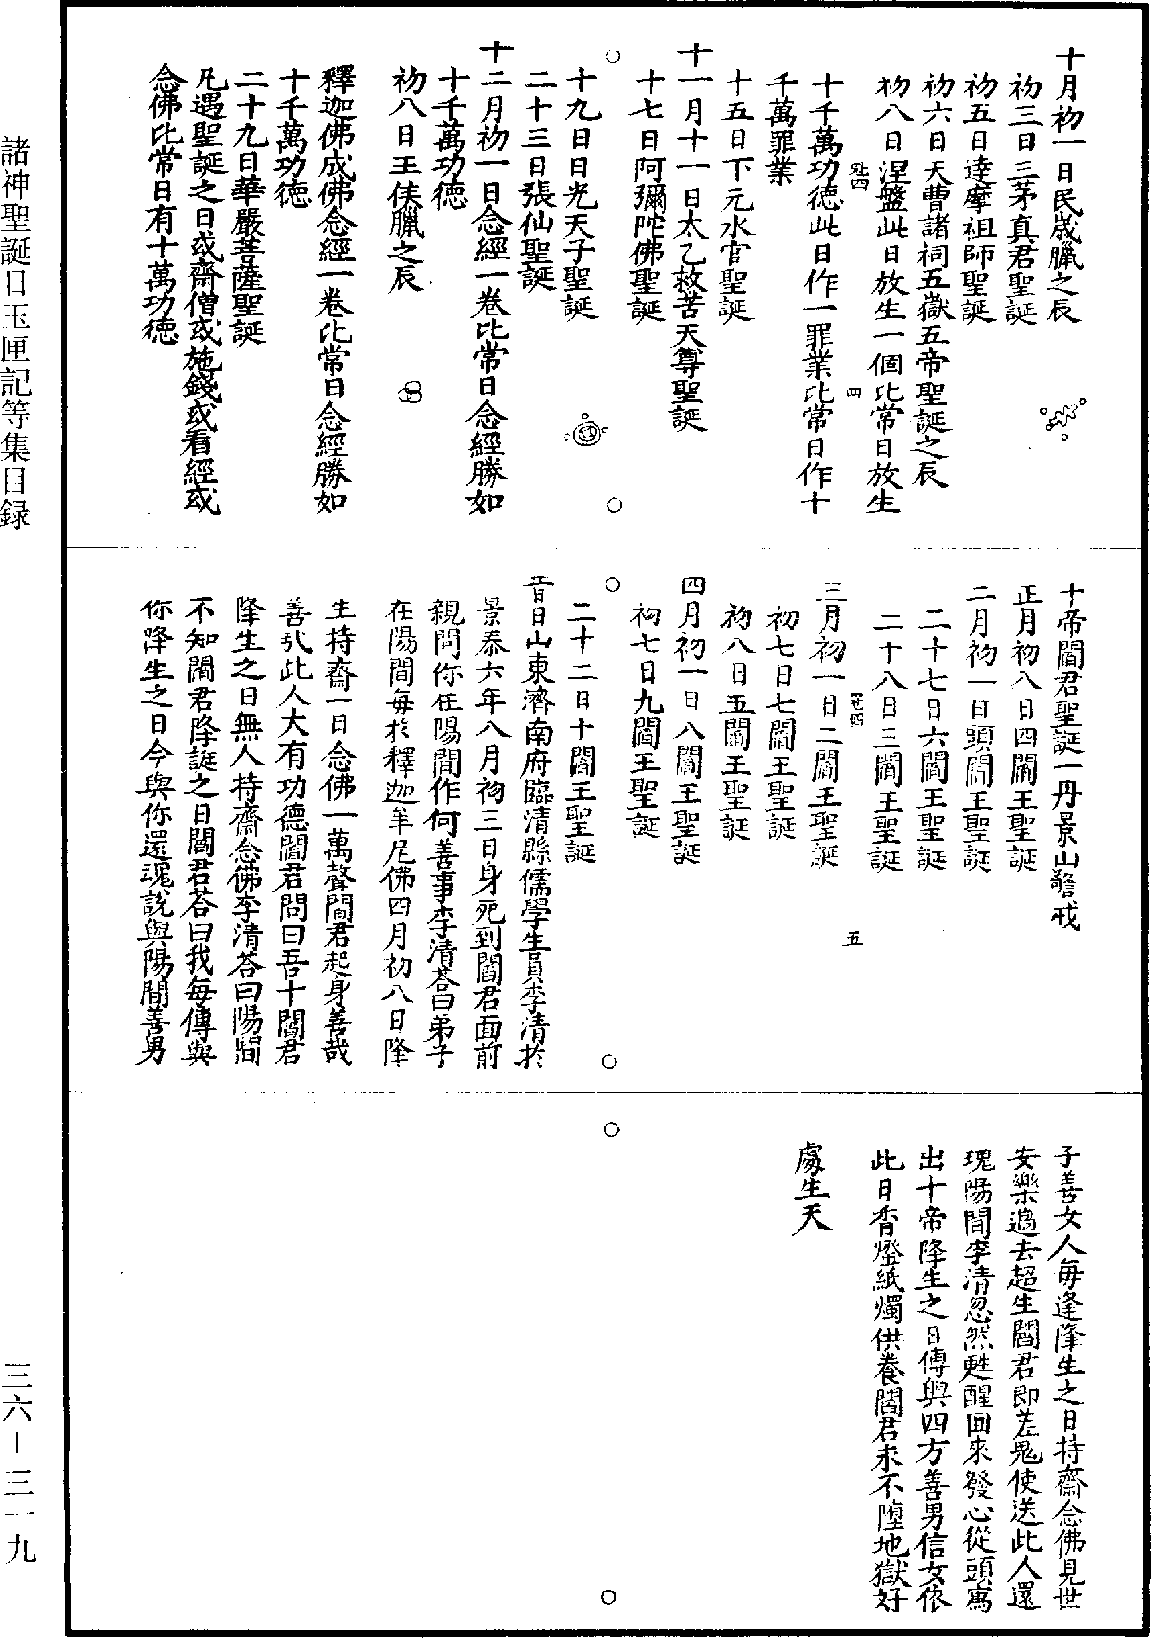 十月初一日民歲臘之辰
初三日三茅真君聖誕
初五日達摩祖師聖誕
初六日天曹諸祠五嶽五帝聖誕之辰
初八日涅盤此日放生一個比常日放生
十千萬功德此日作一罪業比常日作十
千萬罪業
十五日下元水官聖誕
十一月十一日太乙救苦天尊聖誕
十七日阿彌陀佛聖誕
十九日日光天子聖誕
二十三日張仙聖誕
十二月初一日念經一卷比常日念經勝如
十千萬功德
初八日王侯臘之辰
釋迦佛成佛念經一卷比常日念經勝如
十千萬功德
二十九日華嚴菩薩聖誕
凡遇聖誕之日或齋僧或施錢或看經或
念佛比常日有十萬功德
四
十帝閻君聖誕一丹景山警戒
正月初八日四閻王聖誕
二月初一日頭閻王聖誕
二十七日六閻王聖誕
二十八日三閻王聖誕
三月初一日二閻王聖誕
初七日七閻王聖誕
初八日五閻王聖誕
四月初一日八閻王聖誕
初七日九閻王聖誕
二十二日十閻王聖誕
昔日山東濟南府臨清縣儒學生員李清於
景泰六年八月初三日身死到閻君面前
親問你在陽間作何善事李清荅曰弟子
在陽間每於釋迦牟尼佛四月初八日降
生持齋一日念佛一萬聲閻君起身善哉
善哉此人大有功德閻君問曰吾十閻君
降生之日無人持齋念佛李清荅曰陽間
不知閻君降誕之日閻君荅曰我每傳與
你降生之日今與你還魂說與陽間善男
五
子善女人每逢降生之日持齋念佛見世
安樂過去超生閻君即差鬼使送此人還
魂陽間李清忽然甦醒回來發心從頭寫
出十帝降生之日傳與四方善男信女依
此日香燈紙燭供養閻君永不墮地獄好
處生天
諸神聖誕日玉匣記等集目録
三六-三一九